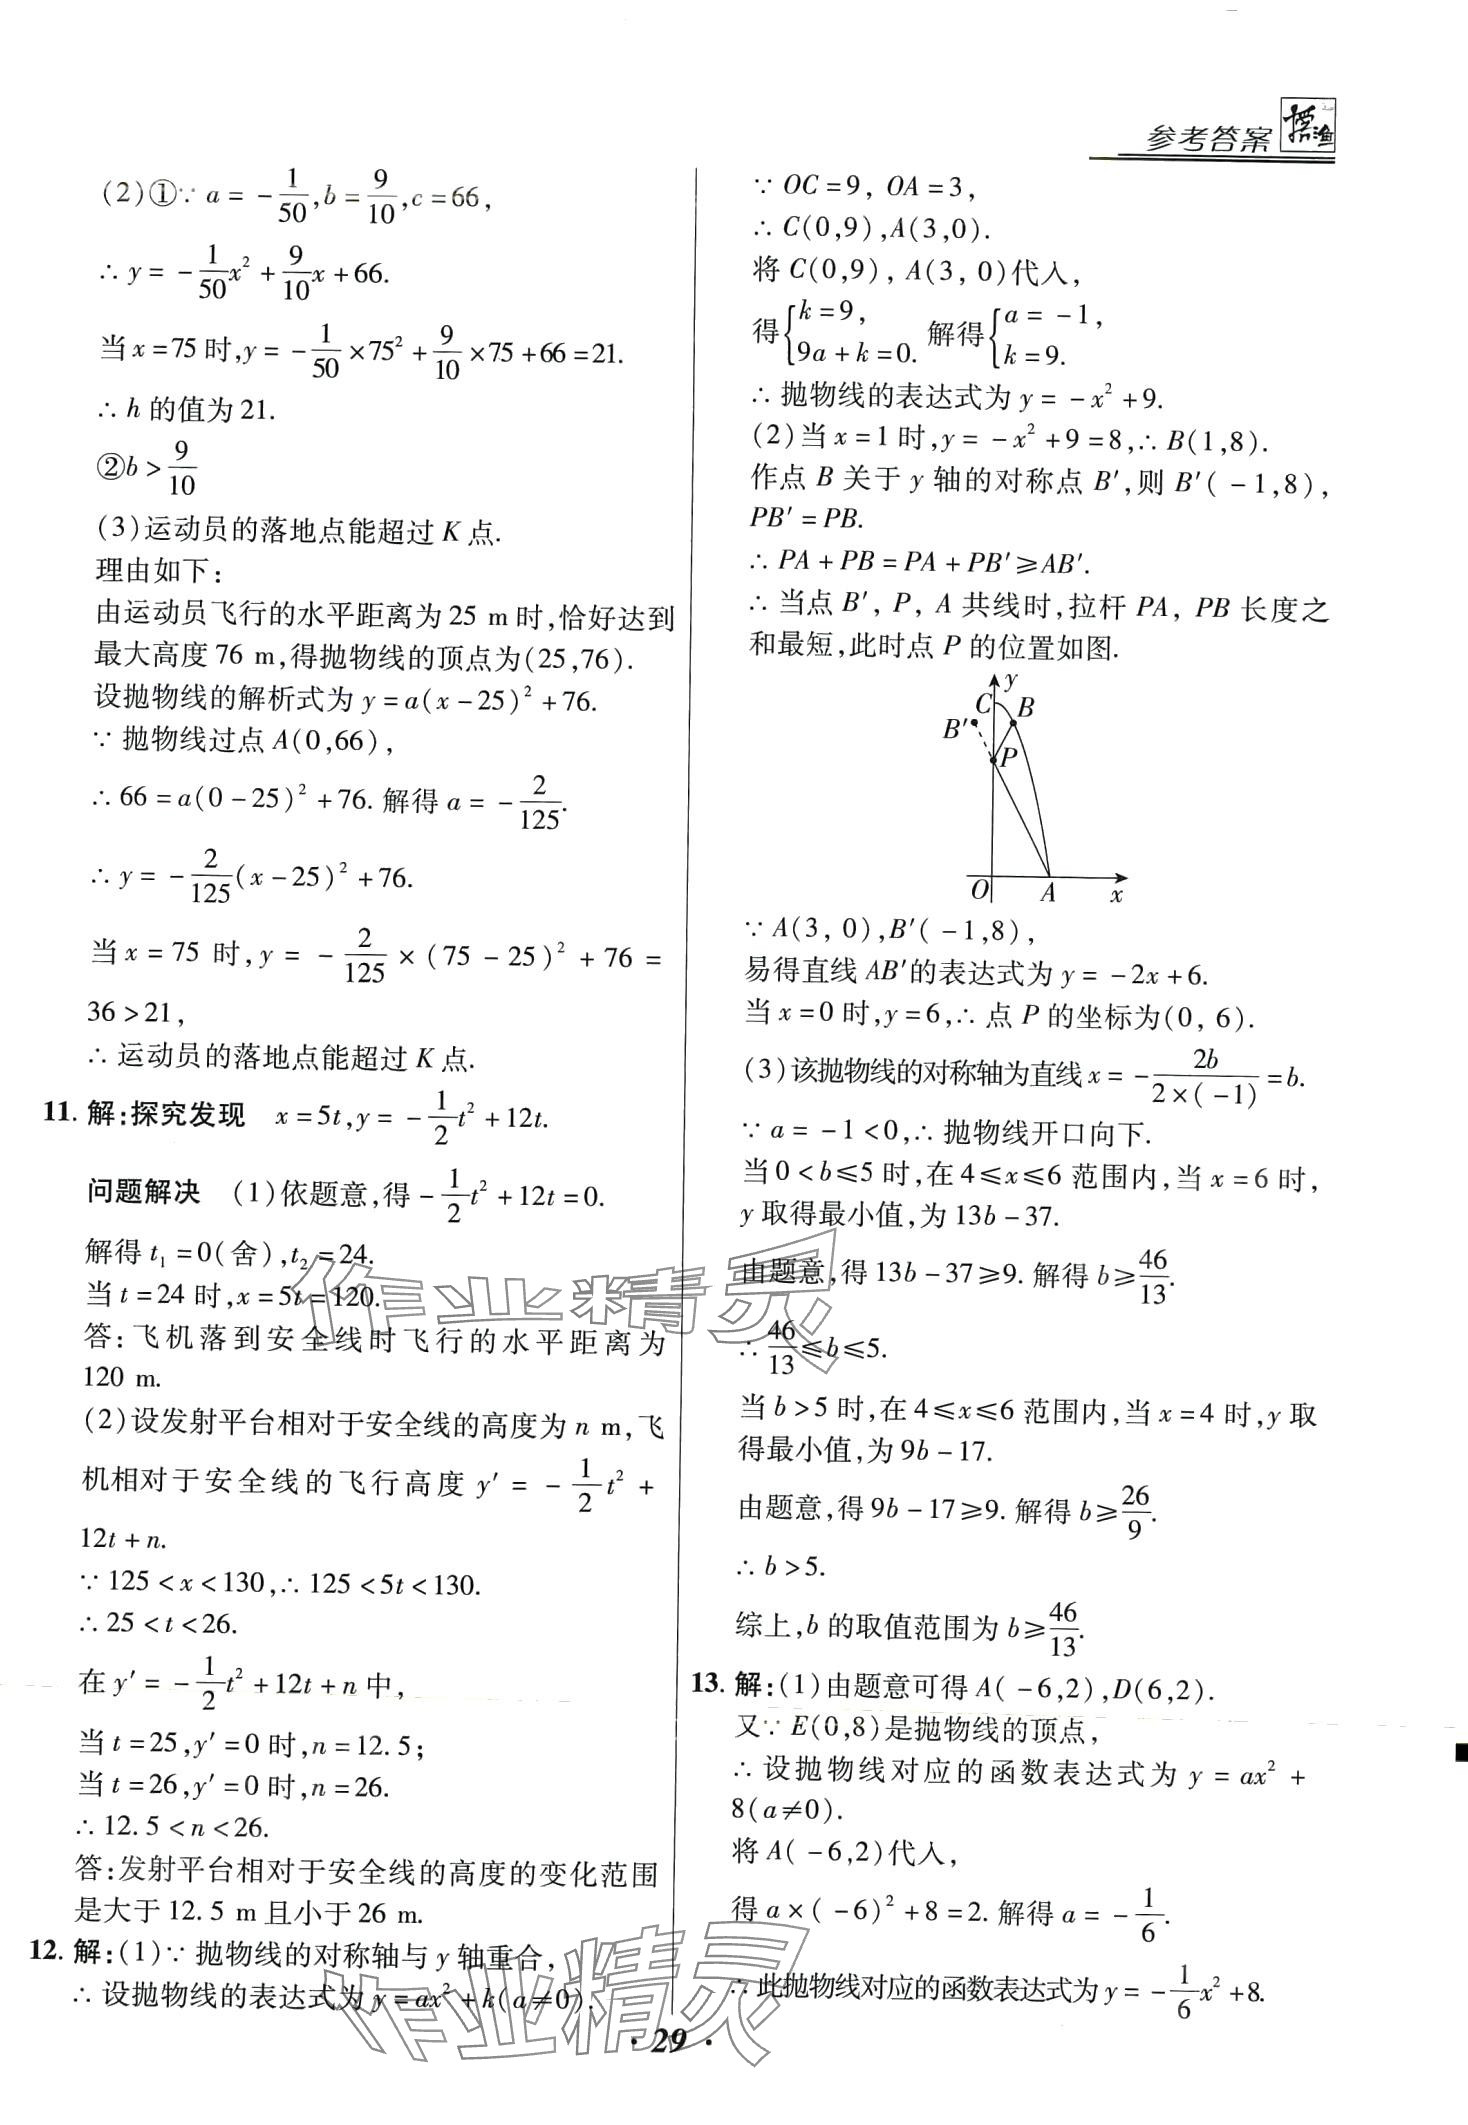 参考答案
(2)①∵ a = -1/50, b = 9/10, c = 66,
∴ y = -1/50x² + 9/10x + 66.
当 x = 75 时, y = -1/50 × 75² + 9/10 × 75 + 66 = 21.
∴ h 的值为 21.
②b > 9/10
(3)运动员的落地点能超过 K 点.
理由如下:
由运动员飞行的水平距离为 25 m 时,恰好达到
最大高度 76 m,得抛物线的顶点为(25,76).
设抛物线的解析式为 y = a(x - 25)² + 76.
∵ 抛物线过点 A(0,66),
∴ 66 = a(0 - 25)² + 76. 解得 a = -2/125.
∴ y = -2/125(x - 25)² + 76.
当 x = 75 时, y = -2/125 × (75 - 25)² + 76 =
36 > 21,
∴ 运动员的落地点能超过 K 点.
11. 解:探究发现 x = 5t, y = -1/2t² + 12t.
问题解决 (1)依题意,得 -1/2t² + 12t = 0.
解得 t₁ = 0(舍), t₂ = 24.
当 t = 24 时, x = 5t = 120.
答:飞机落到安全线时飞行的水平距离为
120 m.
(2)设发射平台相对于安全线的高度为 n m,飞
机相对于安全线的飞行高度 y′ = -1/2t² +
12t + n.
∵ 125 < x < 130, ∴ 125 < 5t < 130.
∴ 25 < t < 26.
在 y′ = -1/2t² + 12t + n 中,
当 t = 25, y′ = 0 时, n = 12.5;
当 t = 26, y′ = 0 时, n = 26.
∴ 12.5 < n < 26.
答:发射平台相对于安全线的高度的变化范围
是大于 12.5 m 且小于 26 m.
12. 解:(1)∵ 抛物线的对称轴与 y 轴重合,
∴ 设抛物线的表达式为 y = ax² + k(a ≠ 0).
∵ OC = 9, OA = 3,
∴ C(0,9), A(3,0).
将 C(0,9), A(3, 0)代入,
得{k = 9, 9a + k = 0. 解得{a = -1, k = 9.
∴ 抛物线的表达式为 y = -x² + 9.
(2)当 x = 1 时, y = -x² + 9 = 8, ∴ B(1,8).
作点 B 关于 y 轴的对称点 B′,则 B′( -1,8),
PB′ = PB.
∴ PA + PB = PA + PB′ ≥ AB′.
∴ 当点 B′, P, A 共线时,拉杆 PA, PB 长度之
和最短,此时点 P 的位置如图.
y
C
B
B′
P
O
A
x
∵ A(3, 0), B′( -1,8),
易得直线 AB′的表达式为 y = -2x + 6.
当 x = 0 时, y = 6, ∴ 点 P 的坐标为(0, 6).
(3)该抛物线的对称轴为直线 x = -2b/2×(-1) = b.
∵ a = -1 < 0, ∴ 抛物线开口向下.
当 0 < b ≤ 5 时,在 4 ≤ x ≤ 6 范围内,当 x = 6 时,
y 取得最小值,为 13b - 37.
由题意,得 13b - 37 ≥ 9. 解得 b ≥ 46/13.
∴ 46/13 ≤ b ≤ 5.
当 b > 5 时,在 4 ≤ x ≤ 6 范围内,当 x = 4 时, y 取
得最小值,为 9b - 17.
由题意,得 9b - 17 ≥ 9. 解得 b ≥ 26/9.
∴ b > 5.
综上, b 的取值范围为 b ≥ 46/13.
13. 解:(1)由题意可得 A( -6,2), D(6,2).
又∵ E(0,8)是抛物线的顶点,
∴ 设抛物线对应的函数表达式为 y = ax² +
8(a ≠ 0).
将 A( -6,2)代入,
得 a × ( -6)² + 8 = 2. 解得 a = -1/6.
∴ 此抛物线对应的函数表达式为 y = -1/6x² + 8.
· 29 ·
作业精灵
作业精灵